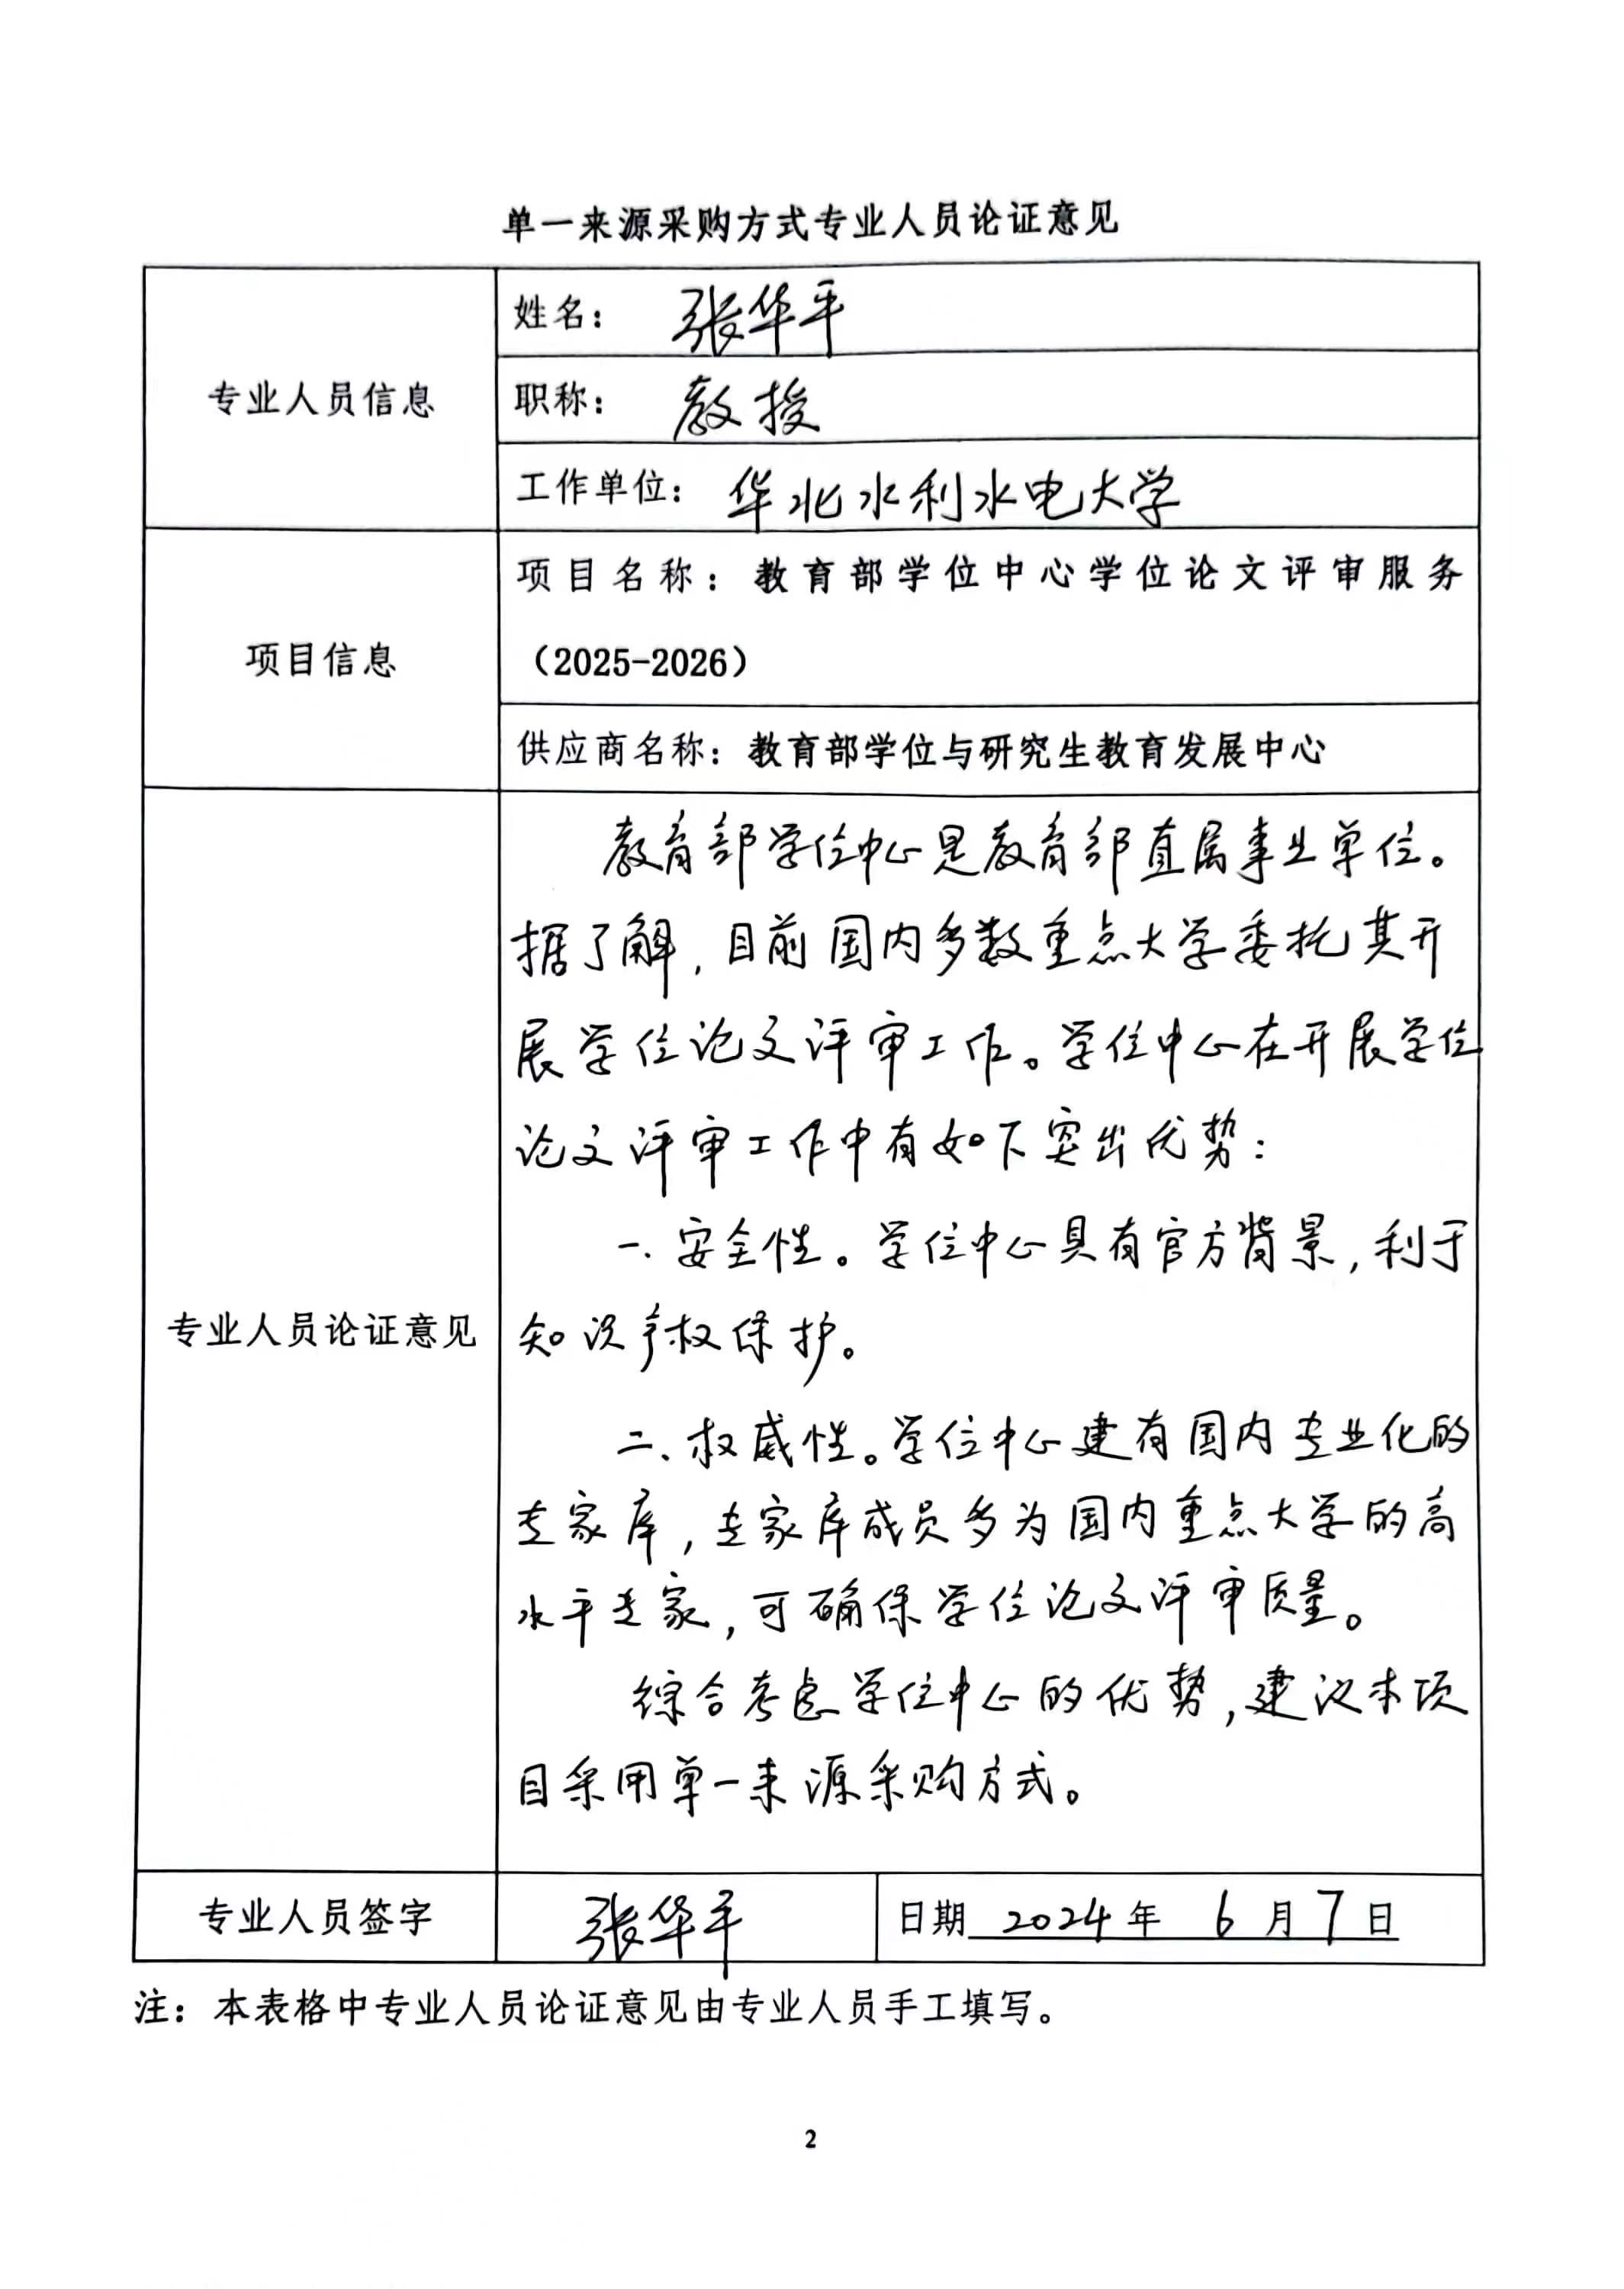 单一来源采购方式专业人员论证意见
专业人员信息
姓名：张华平
职称：教授
工作单位：华北水利水电大学
项目信息
项目名称：教育部学位中心学位论文评审服务
（2025-2026）
供应商名称：教育部学位与研究生教育发展中心
专业人员论证意见
教育部学位中心是教育部直属事业单位。
据了解，目前国内多数重点大学委托其开
展学位论文评审工作。学位中心在开展学位
论文评审工作中有如下突出优势：
一、安全性。学位中心具有官方背景，利于
知识产权保护。
二、权威性。学位中心建有国内专业化的
专家库，专家库成员多为国内重点大学的高
水平专家，可确保学位论文评审质量。
综合考虑学位中心的优势，建议本项
目采用单一来源采购方式。
专业人员签字 张华平 日期 2024 年 6 月 7 日
注：本表格中专业人员论证意见由专业人员手工填写。
2